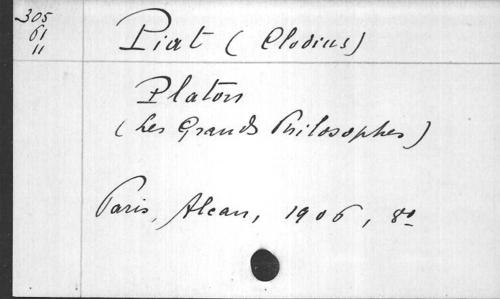 305
61
11
Piat (Clodius)
Platon
(Les Grands Philosophes)
Paris, Alcan, 1906, 8º